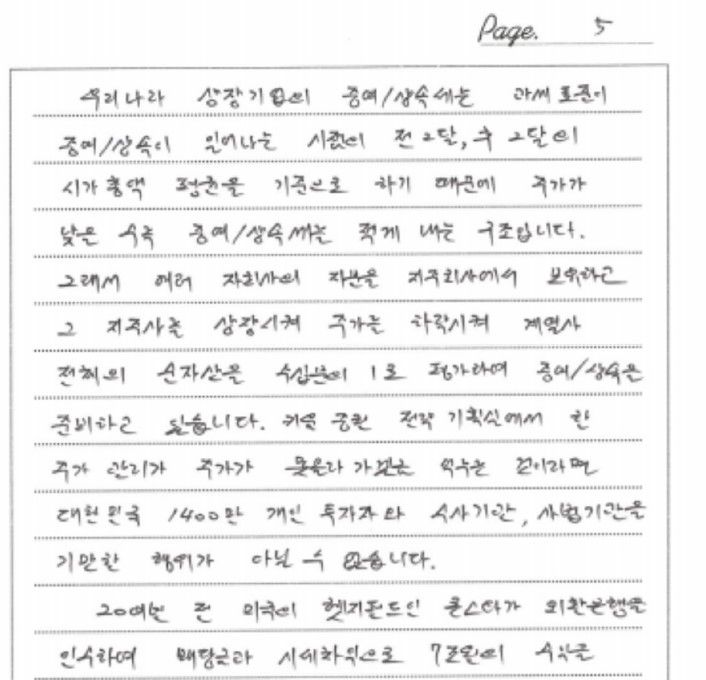 Page. 5
우리나라 상장기업의 증여/상속세는 과세표준이
증여/상속이 일어나는 시점의 전 2달, 후 2달의
시가총액 평균을 기준으로 하기 때문에 주가가
낮을 수록 증여/상속세는 적게 내는 구조입니다.
그래서 여러 자회사의 지분을 지주회사에서 보유하고
그 지주사는 상장시켜 주가는 하락시켜 계열사
전체의 순자산을 수십분의 1로 평가하여 증여/상속을
준비하고 있습니다. 전략 기획실에서 한
주가 관리가 주가가 누르는 것이라면
대한민국 1400만 개인 투자자와 수사기관, 사법기관을
기만한 행위가 아닐 수 없습니다.
20여년 전 미국의 헷지펀드인 론스타가 외환은행을
인수하여 배당금과 시세차익으로 7조원의 수익을